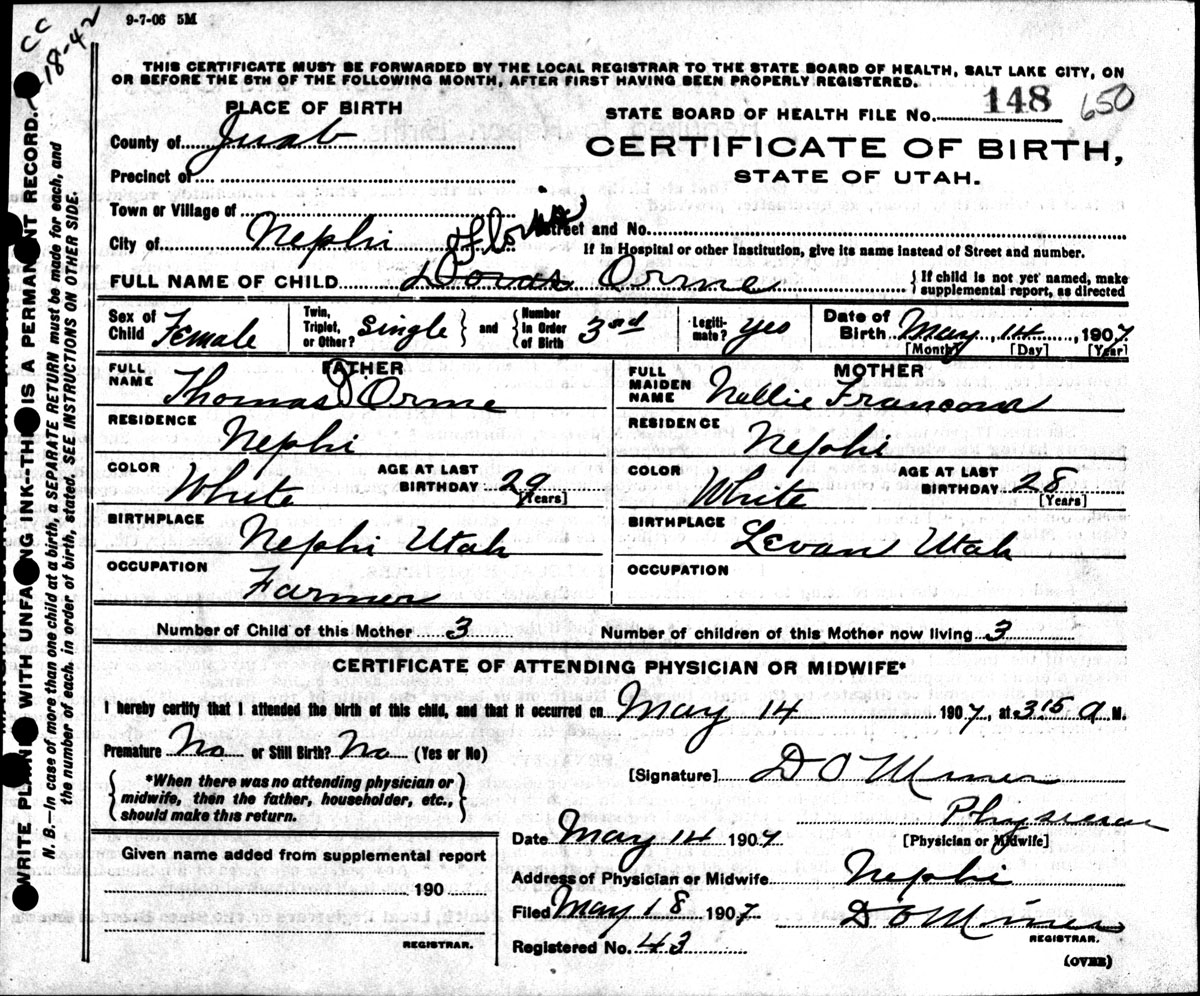 9-7-06 5M
CC
18-42
THIS CERTIFICATE MUST BE FORWARDED BY THE LOCAL REGISTRAR TO THE STATE BOARD OF HEALTH, SALT LAKE CITY, ON
OR BEFORE THE 5TH OF THE FOLLOWING MONTH, AFTER FIRST HAVING BEEN PROPERLY REGISTERED.
PLACE OF BIRTH
STATE BOARD OF HEALTH FILE No. 148 650
County of Juab
CERTIFICATE OF BIRTH,
Precinct of
STATE OF UTAH.
Town or Village of
Street and No.
City of Nephi
If in Hospital or other Institution, give its name instead of Street and number.
FULL NAME OF CHILD Orme {If child is not yet named, make supplemental report, as directed
Sex of Child Female Twin, Triplet, or Other? Single } and { Number In Order of Birth 3rd Legitimate? yes Date of Birth May, 14, 1907
[Month] [Day] [Year]
FATHER
FULL NAME Thomas D Orme
RESIDENCE Nephi
COLOR White AGE AT LAST BIRTHDAY 29 [Years]
BIRTHPLACE Nephi Utah
OCCUPATION Farmer
MOTHER
FULL MAIDEN NAME Nellie
RESIDENCE Nephi
COLOR White AGE AT LAST BIRTHDAY 28 [Years]
BIRTHPLACE Levan Utah
OCCUPATION
Number of Child of this Mother 3 Number of children of this Mother now living 3
CERTIFICATE OF ATTENDING PHYSICIAN OR MIDWIFE*
I hereby certify that I attended the birth of this child, and that it occurred on May 14 1907, at 3 15 a. M.
Premature No or Still Birth? No (Yes or No)
{*When there was no attending physician or midwife, then the father, householder, etc., should make this return.}
[Signature] D O Miner
Physician
[Physician or Midwife]
Date May 14 1907
Address of Physician or Midwife Nephi
Filed May 18 1907 D O Miner
REGISTRAR.
Registered No. 43
(OVER)
Given name added from supplemental report
190
REGISTRAR.
WRITE PLAINLY WITH UNFADING INK--THIS IS A PERMANENT RECORD.
N. B.—In case of more than one child at a birth, a SEPARATE RETURN must be made for each, and
the number of each, in order of birth, stated. SEE INSTRUCTIONS ON OTHER SIDE.